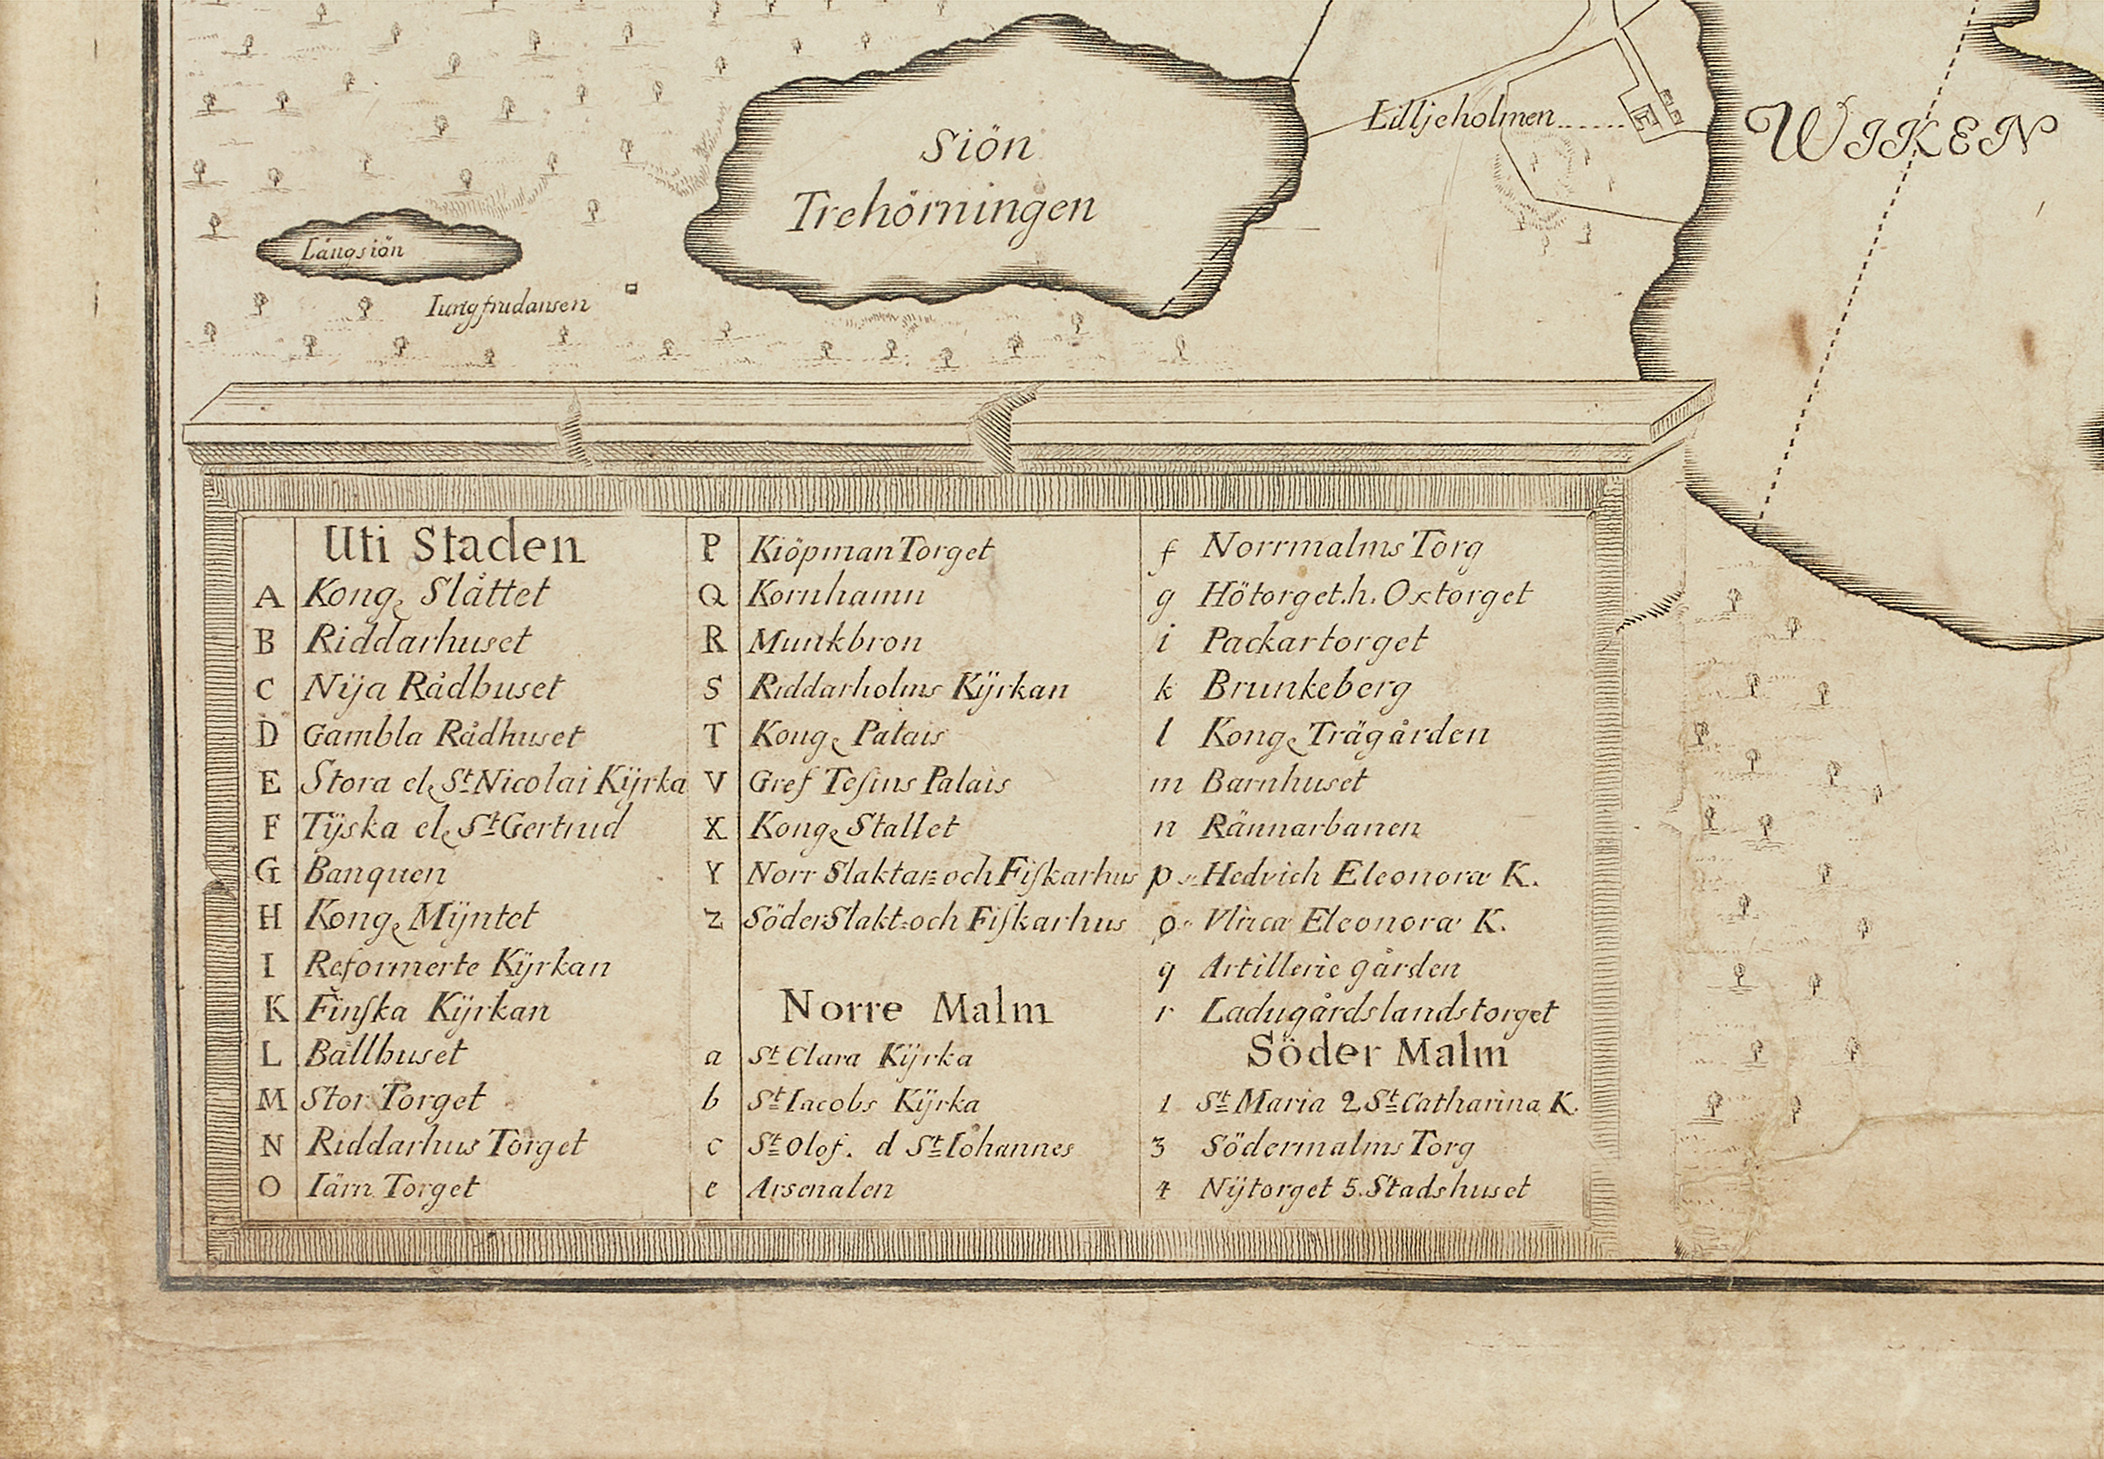 Siön
Trehörningen
Lilljeholmen
WIKEN
Långsiön
Iungfrudansen
Uti Staden
A Kong. Slåttet
B Riddarhuset
C Nÿa Rådhuset
D Gambla Rådhuset
E Stora el. St Nicolai Kÿrka
F Tÿska el. St Gertrud
G Banquen
H Kong. Mÿntet
I Reformerte Kÿrkan
K Finſka Kÿrkan
L Bållhuset
M Stor Torget
N Riddarhus Torget
O Iärn Torget
P Kiöpman Torget
Q Kornhamn
R Munkbron
S Riddarholms Kÿrkan
T Kong. Palais
V Gref Teſins Palais
X Kong. Stallet
Y Norr Slaktar= och Fiſkarhus
Z Söder Slakt= och Fiſkarhus
Norre Malm
a St Clara Kÿrka
b St Iacobs Kÿrka
c St Olof. d St Iohannes
e Arsenalen
f Norrmalms Torg
g Hötorget. h. Oxtorget
i Packartorget
k Brunkeberg
l Kong. Trägården
m Barnhuset
n Rännarbanen
p Hedvich Eleonoræ K.
o Vlricæ Eleonoræ K.
q Artillerie gården
r Ladugårdslandstorget
Söder Malm
1 St Maria 2 St Catharina K.
3 Södermalms Torg
4 Nÿtorget 5. Stadshuset